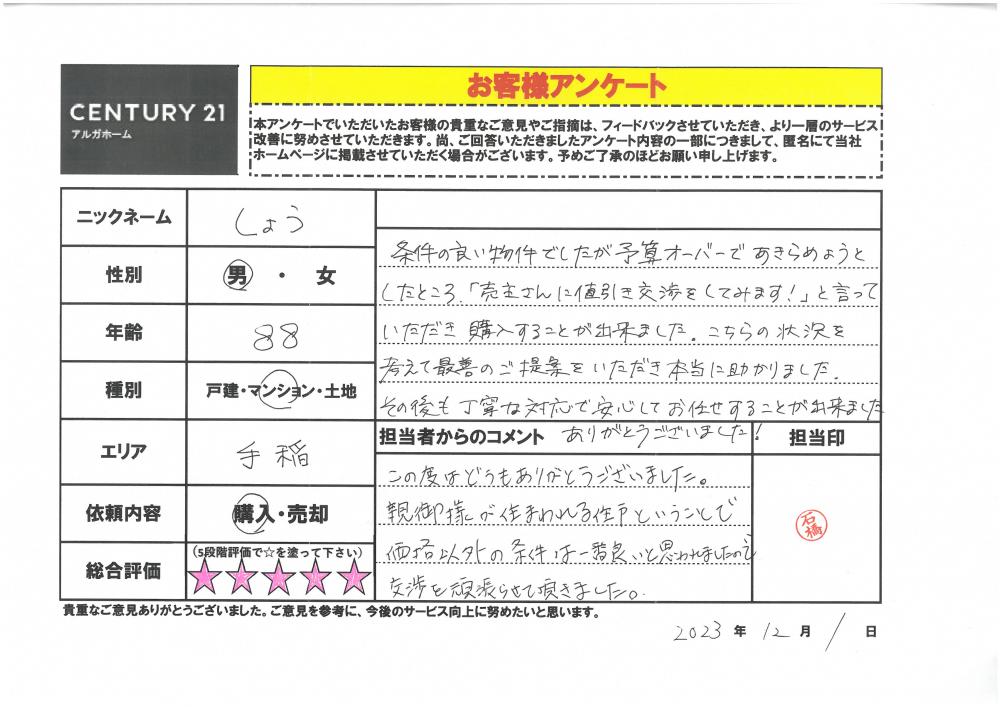 CENTURY 21
アルガホーム
お客様アンケート
本アンケートでいただいたお客様の貴重なご意見やご指摘は、フィードバックさせていただき、より一層のサービス
改善に努めさせていただきます。尚、ご回答いただきましたアンケート内容の一部につきまして、匿名にて当社
ホームページに掲載させていただく場合がございます。予めご了承のほどお願い申し上げます。
ニックネーム しょう
性別 男・女
年齢 88
種別 戸建・マンション・土地
エリア 手稲
依頼内容 購入・売却
総合評価 (5段階評価で☆を塗って下さい)
★★★★★
条件の良い物件でしたが予算オーバーであきらめようと
したところ、「売主さんに値引き交渉をしてみます!」と言って
いただき購入することが出来ました。こちらの状況を
考えて最善のご提案をいただき本当に助かりました.
その後も丁寧な対応で安心してお任せすることが出来ました
ありがとうございました!
担当者からのコメント
担当印
この度はどうもありがとうございました。
親御様が住まわれる住戸ということで
価格以外の条件は一番良いと思われましたので
交渉を頑張らせて頂きました。
石橋
貴重なご意見ありがとうございました。ご意見を参考に、今後のサービス向上に努めたいと思います。
2023年12月1日